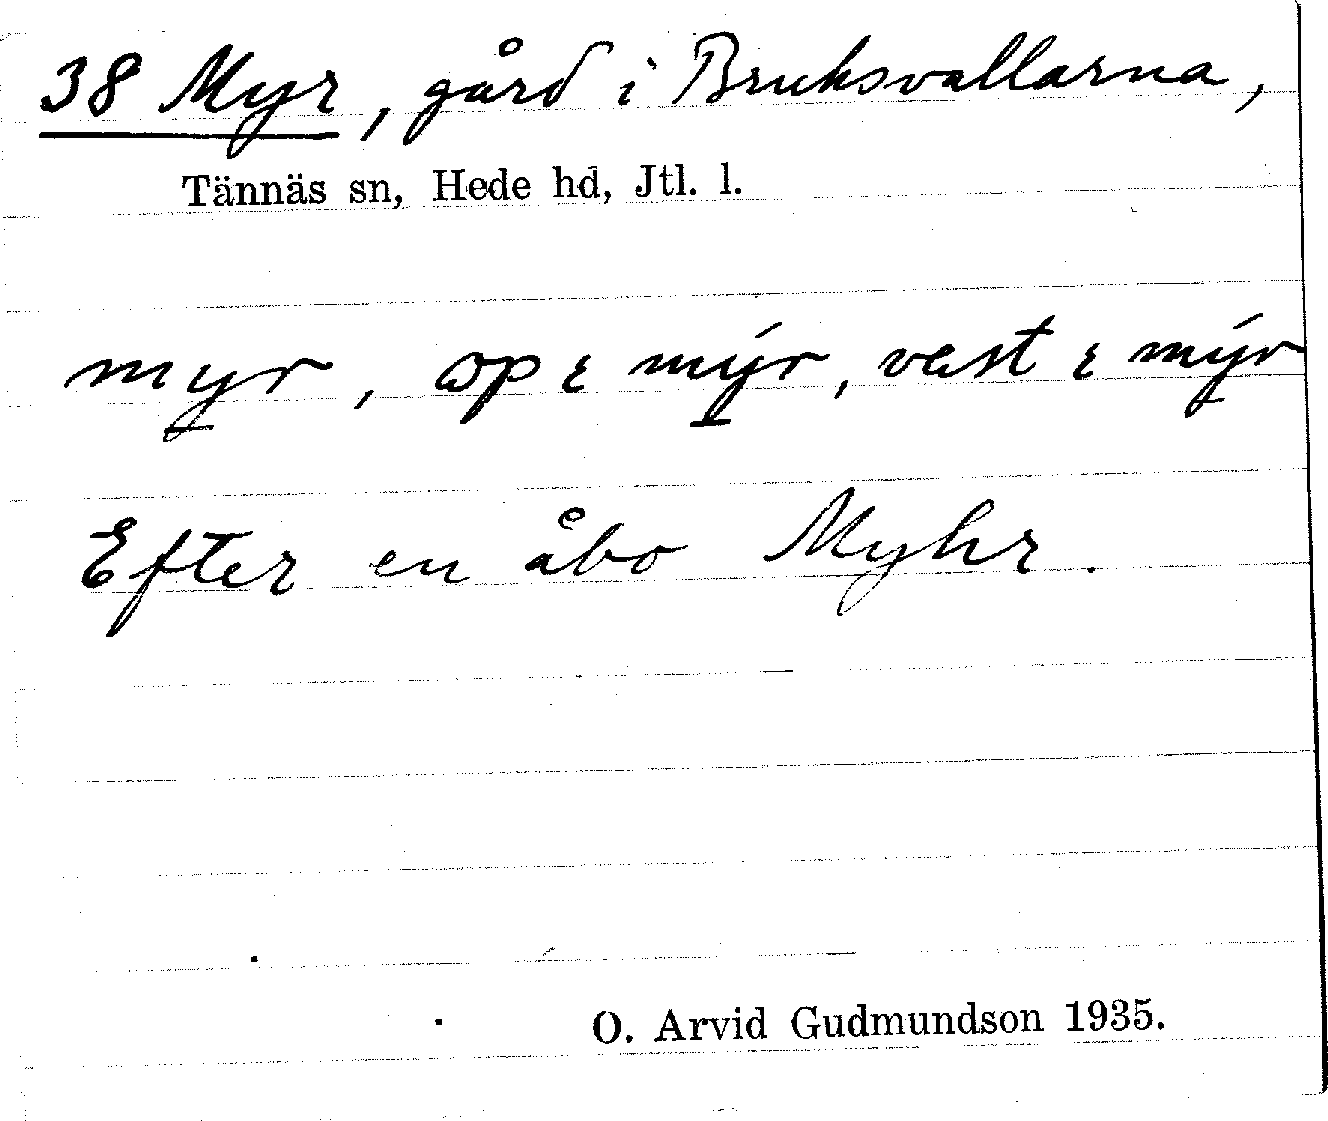 38 Myr, gård i Bruksvallarna,
Tännäs sn, Hede hd, Jtl. l.
myr, op ɛ mýr, vest ɛ mýr
Efter en åbo Myhr.
O. Arvid Gudmundson 1935.